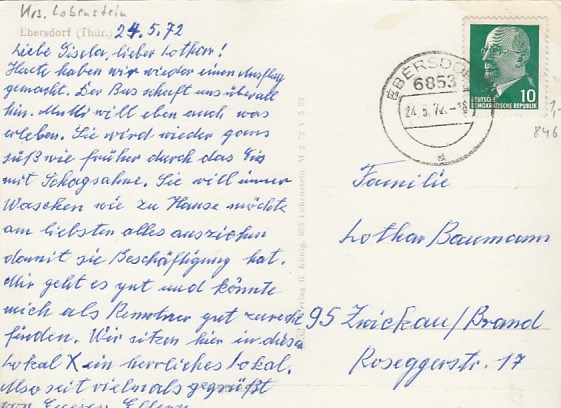 Krs. Lobenstein
Ebersdorf (Thür.) 24.5.72
Liebe Gisela, lieber Lothar!
Heute haben wir wieder einen Ausflug
gemacht. Der Bus schafft uns überall
hin. Mutti will eben auch was
erleben. Sie wird wieder ganz
süß wie früher durch das Eis
mit Schagsahne. Sie will immer
Waschen wie zu Hause möchte
am liebsten alles ausziehen
damit sie Beschäftigung hat.
Mir geht es gut und könnte
mich als Rentner gut zurecht
finden. Wir sitzen hier in diesem
Lokal X ein herrliches Lokal.
Also seid vielmals gegrüßt
von Euren Eltern
EBERSDORF
6853
24.5.72
a
10
DEUTSCHE
DEMOKRATISCHE REPUBLIK
1,-
846
Verlag H. König, 685 Lobenstein
Familie
Lothar Baumann
95 Zwickau/Brand
Roseggerstr. 17